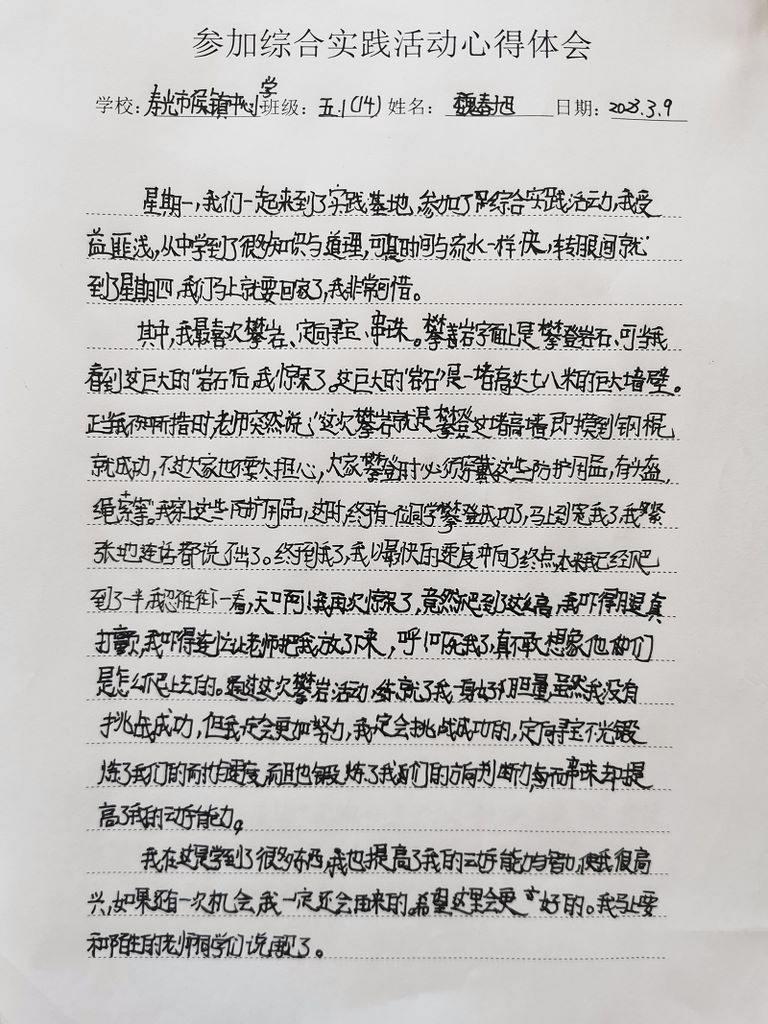 参加综合实践活动心得体会
学校：寿光市侯镇中心小学 班级：五.1(14) 姓名：魏春旭 日期：2023.3.9
星期一，我们一起来到了实践基地，参加了综合实践活动，我受
益匪浅，从中学到了很多知识与道理，可是时间与流水一样快，转眼间就
到了星期四，我们马上就要回家了，我非常可惜。
其中，我最喜欢攀岩、定向寻宝、串珠。攀岩字面上是攀登岩石、可当我
看到这巨大的“岩石”后，我惊呆了。这巨大的“岩石”是一堵高达七八米的巨大墙壁。
正当我不知所措时，老师突然说：“这次攀岩就是攀登这堵高墙，即摸到钢棍
就成功，不过大家也不要太担心，大家攀登时必须穿戴这些防护用品，有头盔，
绳索等”。我穿上这些防护用品，这时，终于有一位同学攀登成功了，马上到我了，我紧
张地连话都说不出了。终于到我了，我以最快的速度冲向了终点，本来我已经爬
到了一半，我忍住往下一看，天啊！我再次惊呆了，竟然爬到了这么高，我吓得腿直
打颤，我吓得连忙让老师把我放了下来，呼！吓死我了，真不敢想象他们
是怎么爬上去的。通过这次攀岩活动，练就了我一身好胆量，虽然我没有
挑战成功，但我定会更加努力，我定会挑战成功的，定向寻宝不光锻
炼了我们的耐力与速度，而且也锻炼了我们的方向判断力，而串珠却提
高了我的动手能力。
我在这里学到了很多东西，我也提高了我的动手能力与智力，使我很高
兴，如果还有一次机会，我一定还会再来的。希望这里会更好的。我马上要
和陌生的老师同学们说再见了。